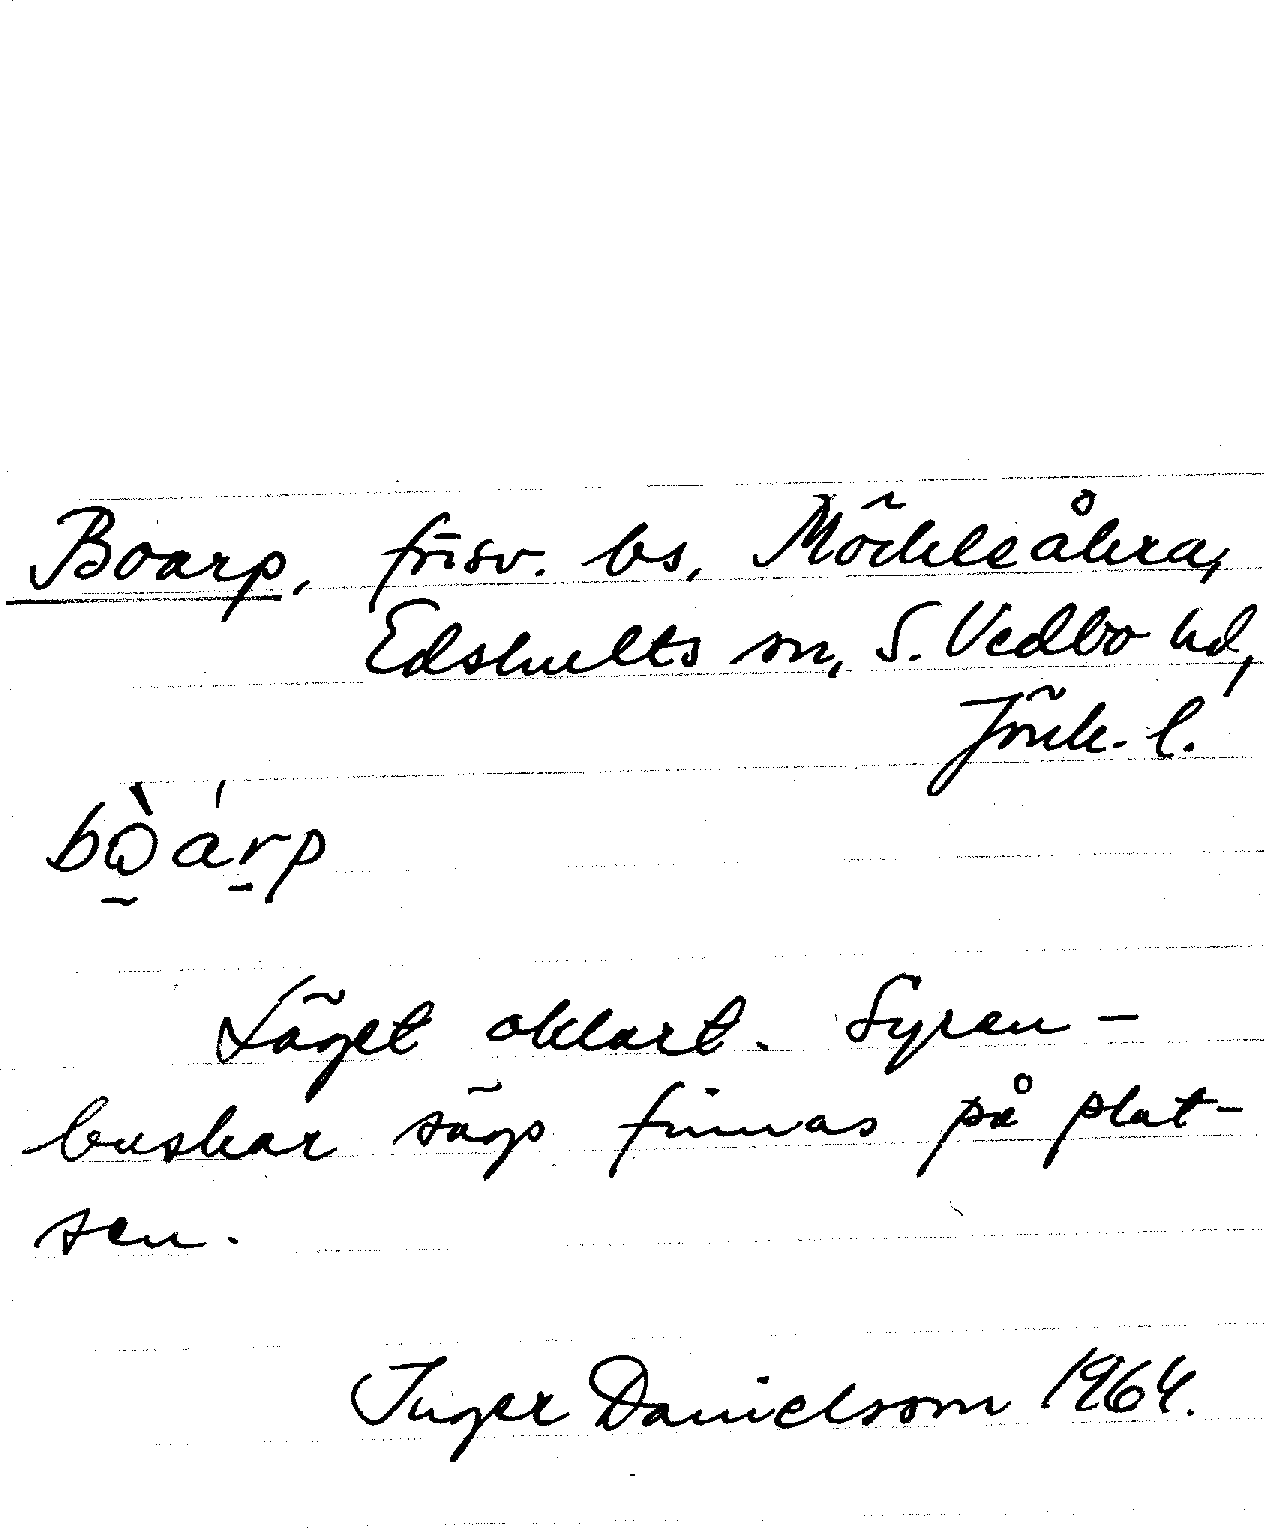 Boarp, försv. bs, Möckleåkra,
Edshults sn, S. Vedbo hd,
Jönk. l.
bò̰árp
Läget oklart. Syren-
buskar sägs finnas på plat-
sen.
Inger Danielsson 1964.